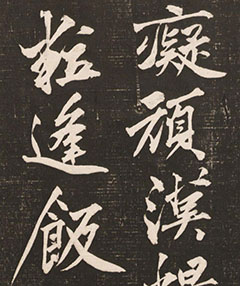 癡頑漢
粒逢飯